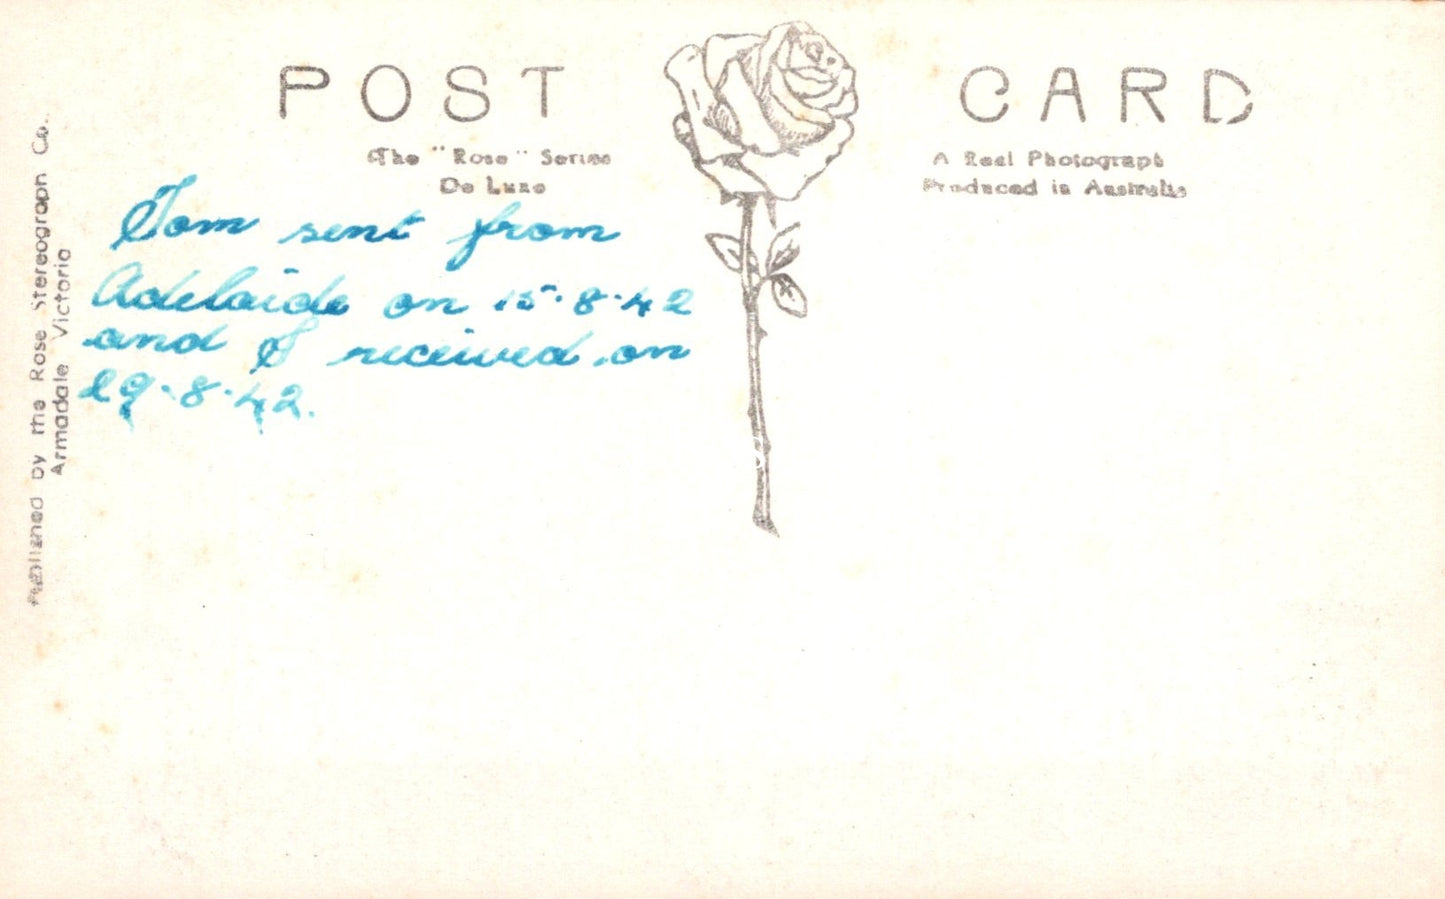 POST CARD
The "Rose" Series
De Luxe
A Real Photograph
Produced in Australia
Published by the Rose Stereograph Co.
Armadale Victoria
Tom sent from
Adelaide on 15.8.42
and I received on
29.8.42.